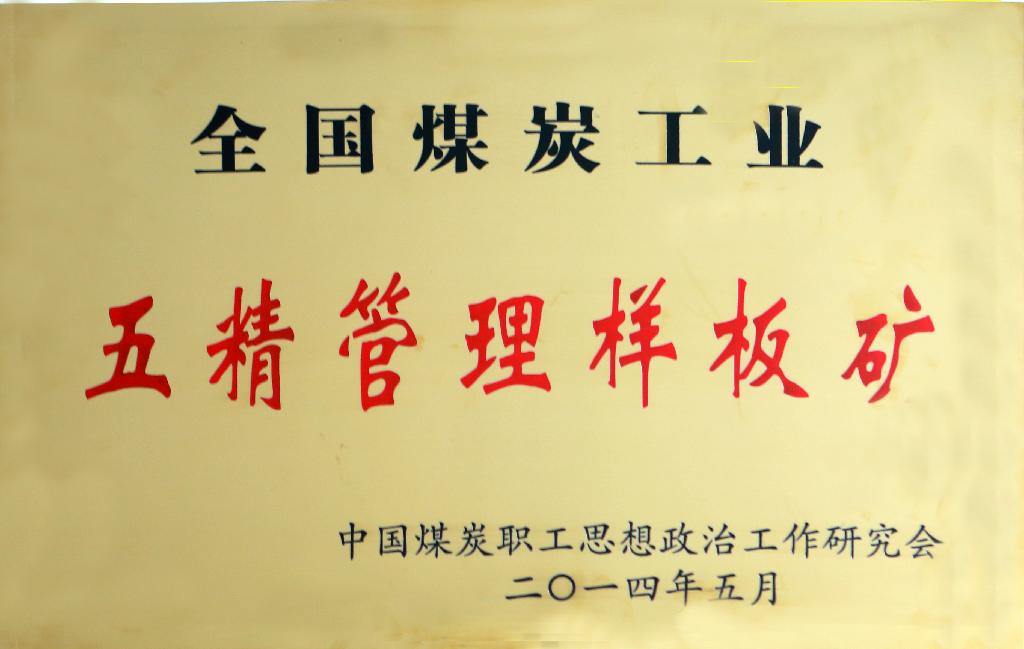 全国煤炭工业
五精管理样板矿
中国煤炭职工思想政治工作研究会
二〇一四年五月